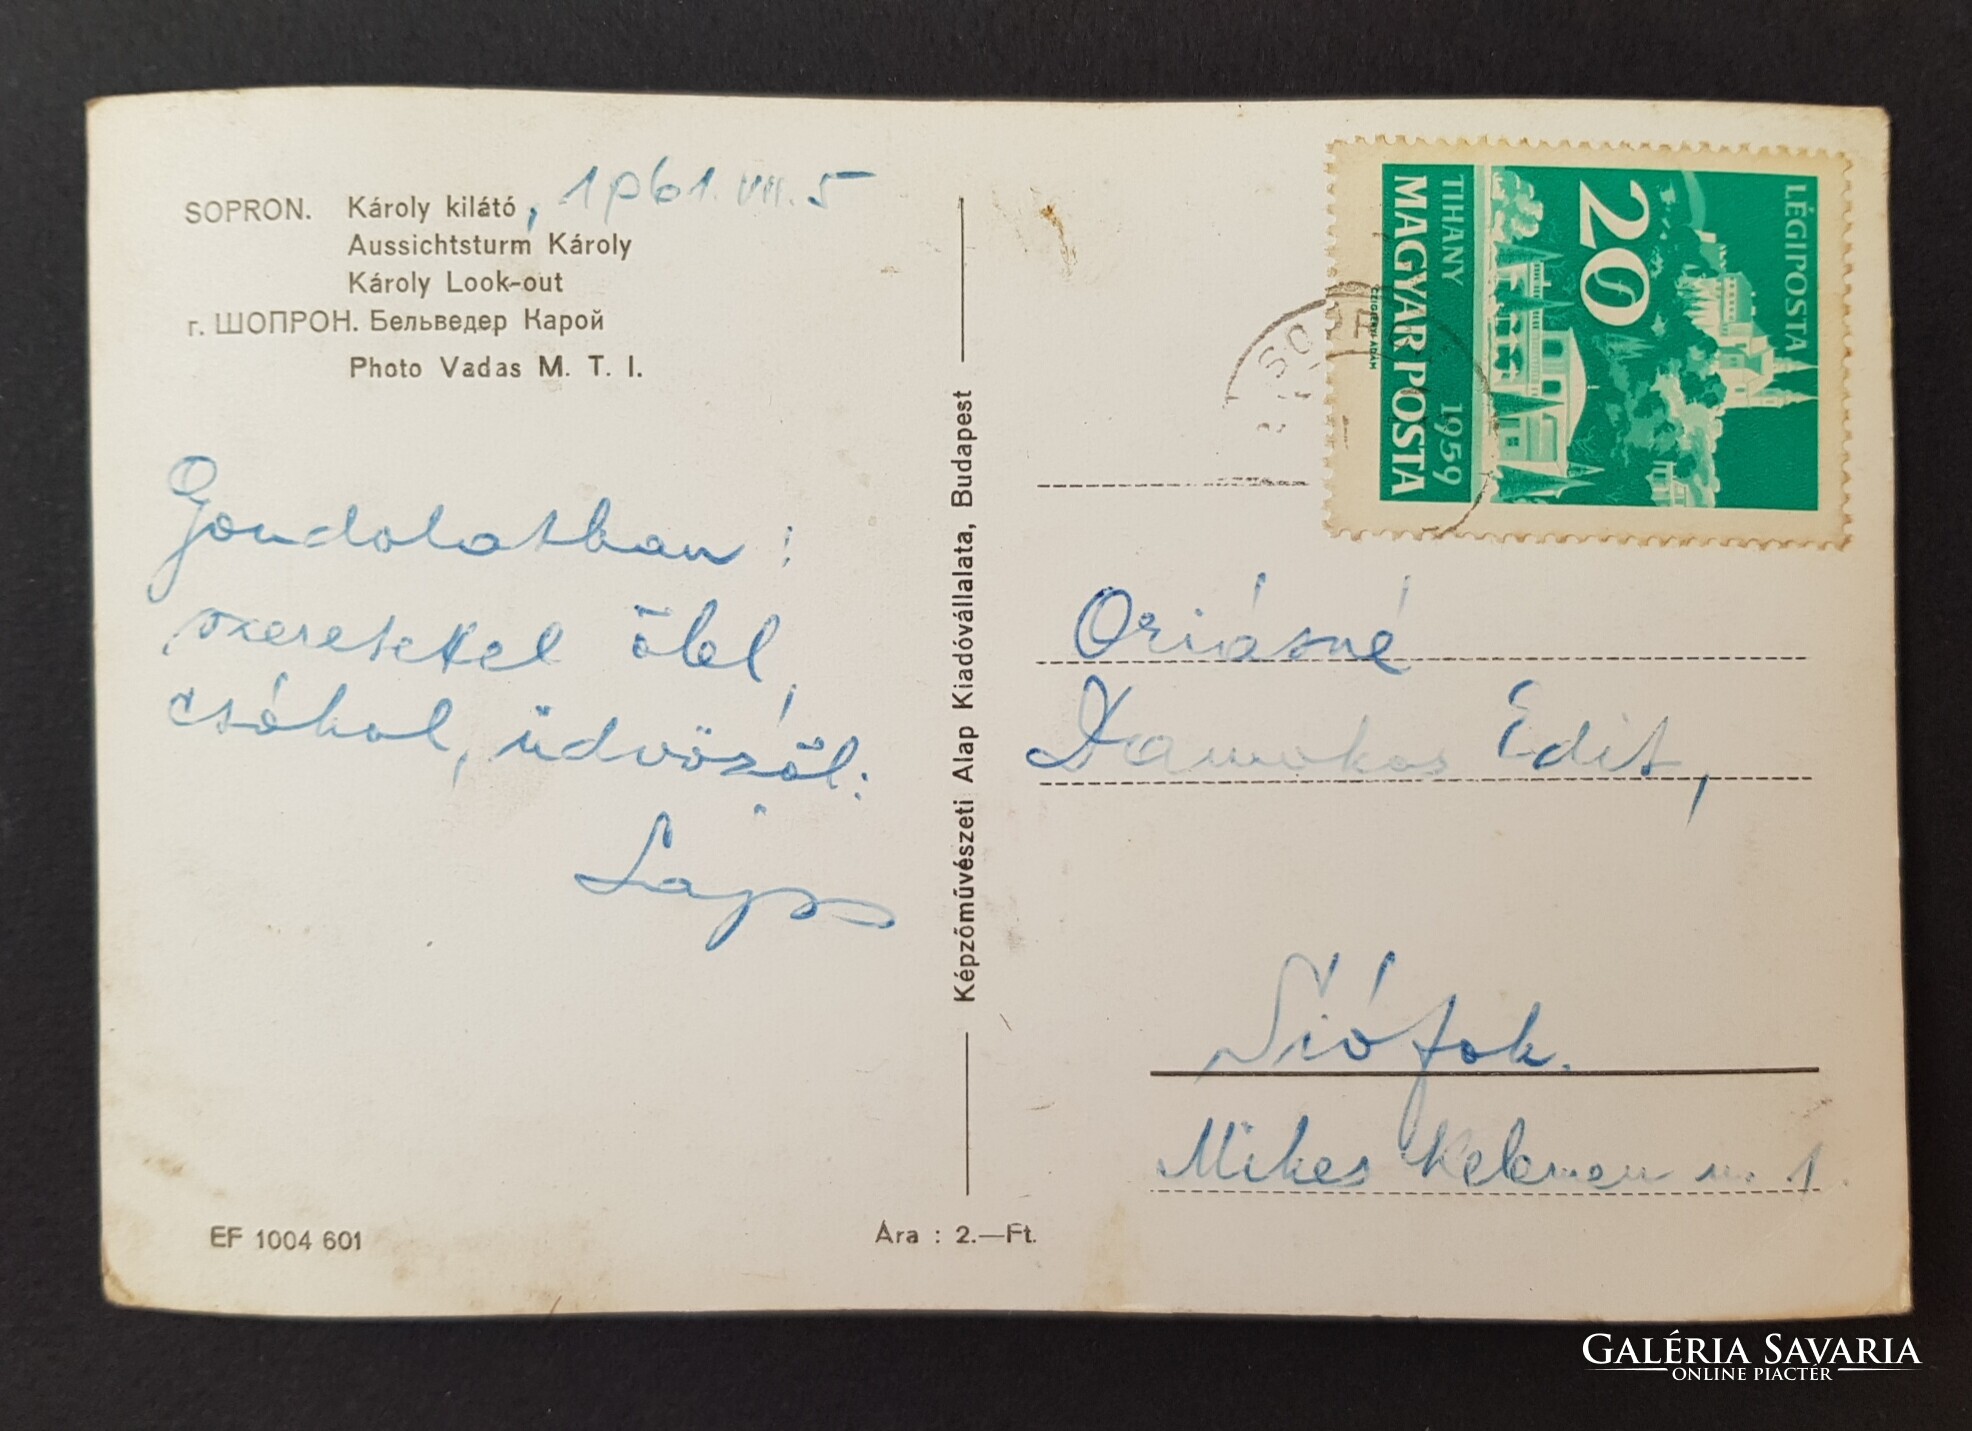 SOPRON. Károly kilátó, 1961. VII. 5
Aussichtsturm Károly
Károly Look-out
г. ШОПРОН. Бельведер Карой
Photo Vadas M. T. I.
Gondolatban:
szeretettel ölel,
csókol, üdvözöl:
Lajos
EF 1004 601
Ára : 2.—Ft.
Képzőművészeti Alap Kiadóvállalata, Budapest
LÉGIPOSTA
20 f
TIHANY 1959
MAGYAR POSTA
CZIGLÉNYI ÁDÁM
SOPRON
Oriásné
Damokos Edit,
Siófok.
Mikes Kelemen u. 1.
GALÉRIA SAVARIA
ONLINE PIACTÉR